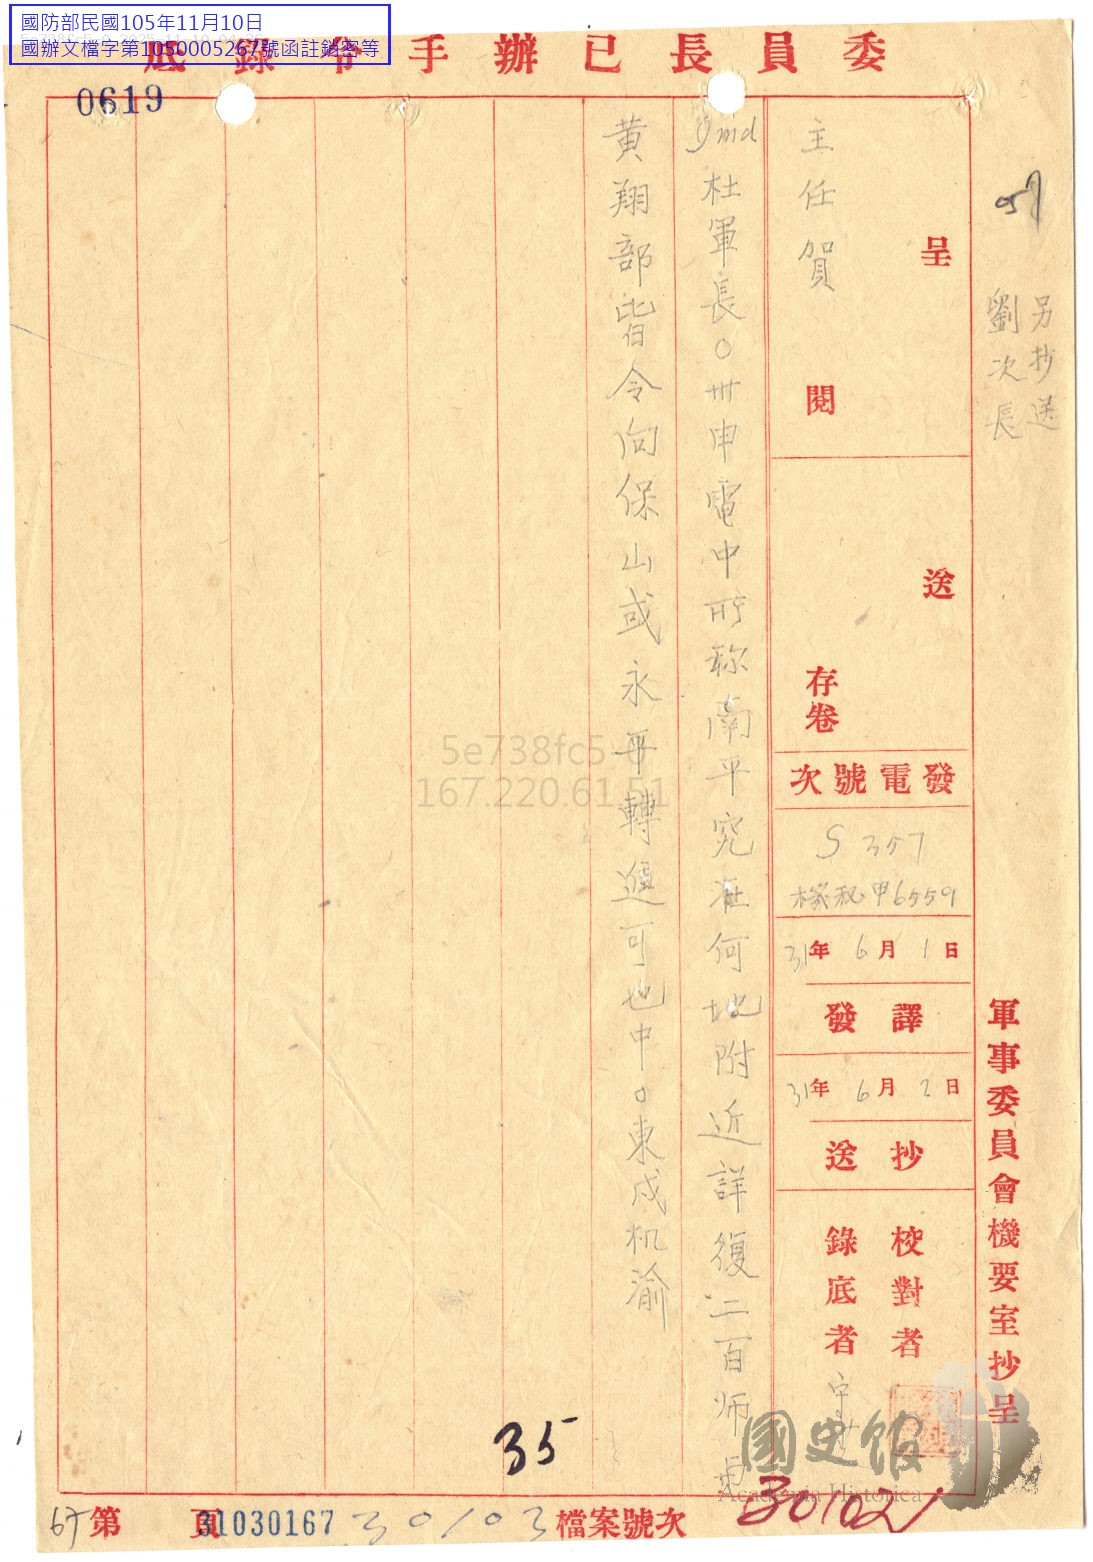 國防部民國105年11月10日
國辦文檔字第1050005267號函註銷密等
委員長已辦手令錄底
0619
另抄送
劉次長
呈
主任賀
閱
送
存卷
發電號次
S 357
機秘甲6559
31年6月1日
譯發
31年6月2日
抄送
校對者
錄底者
軍事委員會機要室抄呈
杜軍長○卅申電中所称南平究在何地附近詳復二百师与
黄翔部皆令向保山或永平轉進可也中○東戌机渝
5e738fc5-6
167.220.61.51
35
國史館
Academia Historica
第 頁
31030167
30103
檔案號次
30102
67